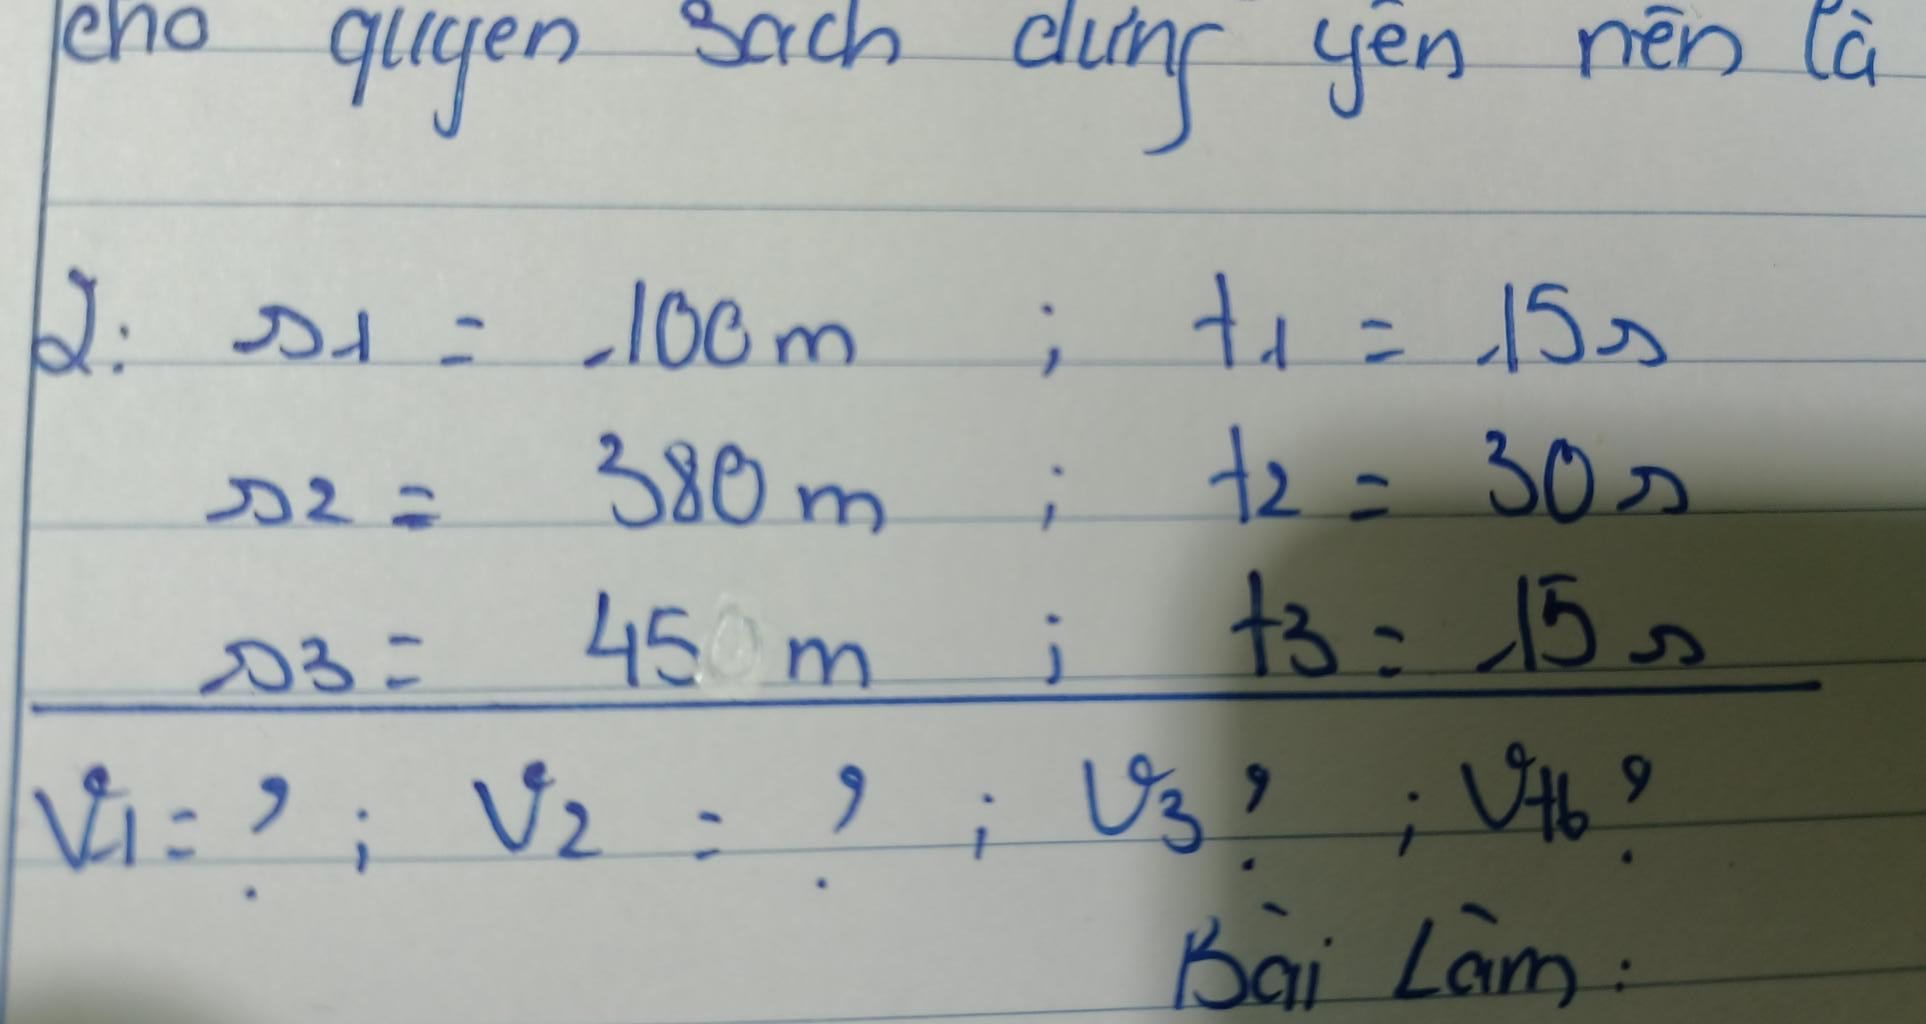 cho quyen sach dưng yên nên là
2: s1 = 100m ; t1 = 15s
s2 = 380m ; t2 = 30s
s3 = 45 m ; t3 = 15s
V1 = ? ; V2 = ? ; V3 ? ; Vtb ?
Bài Làm :